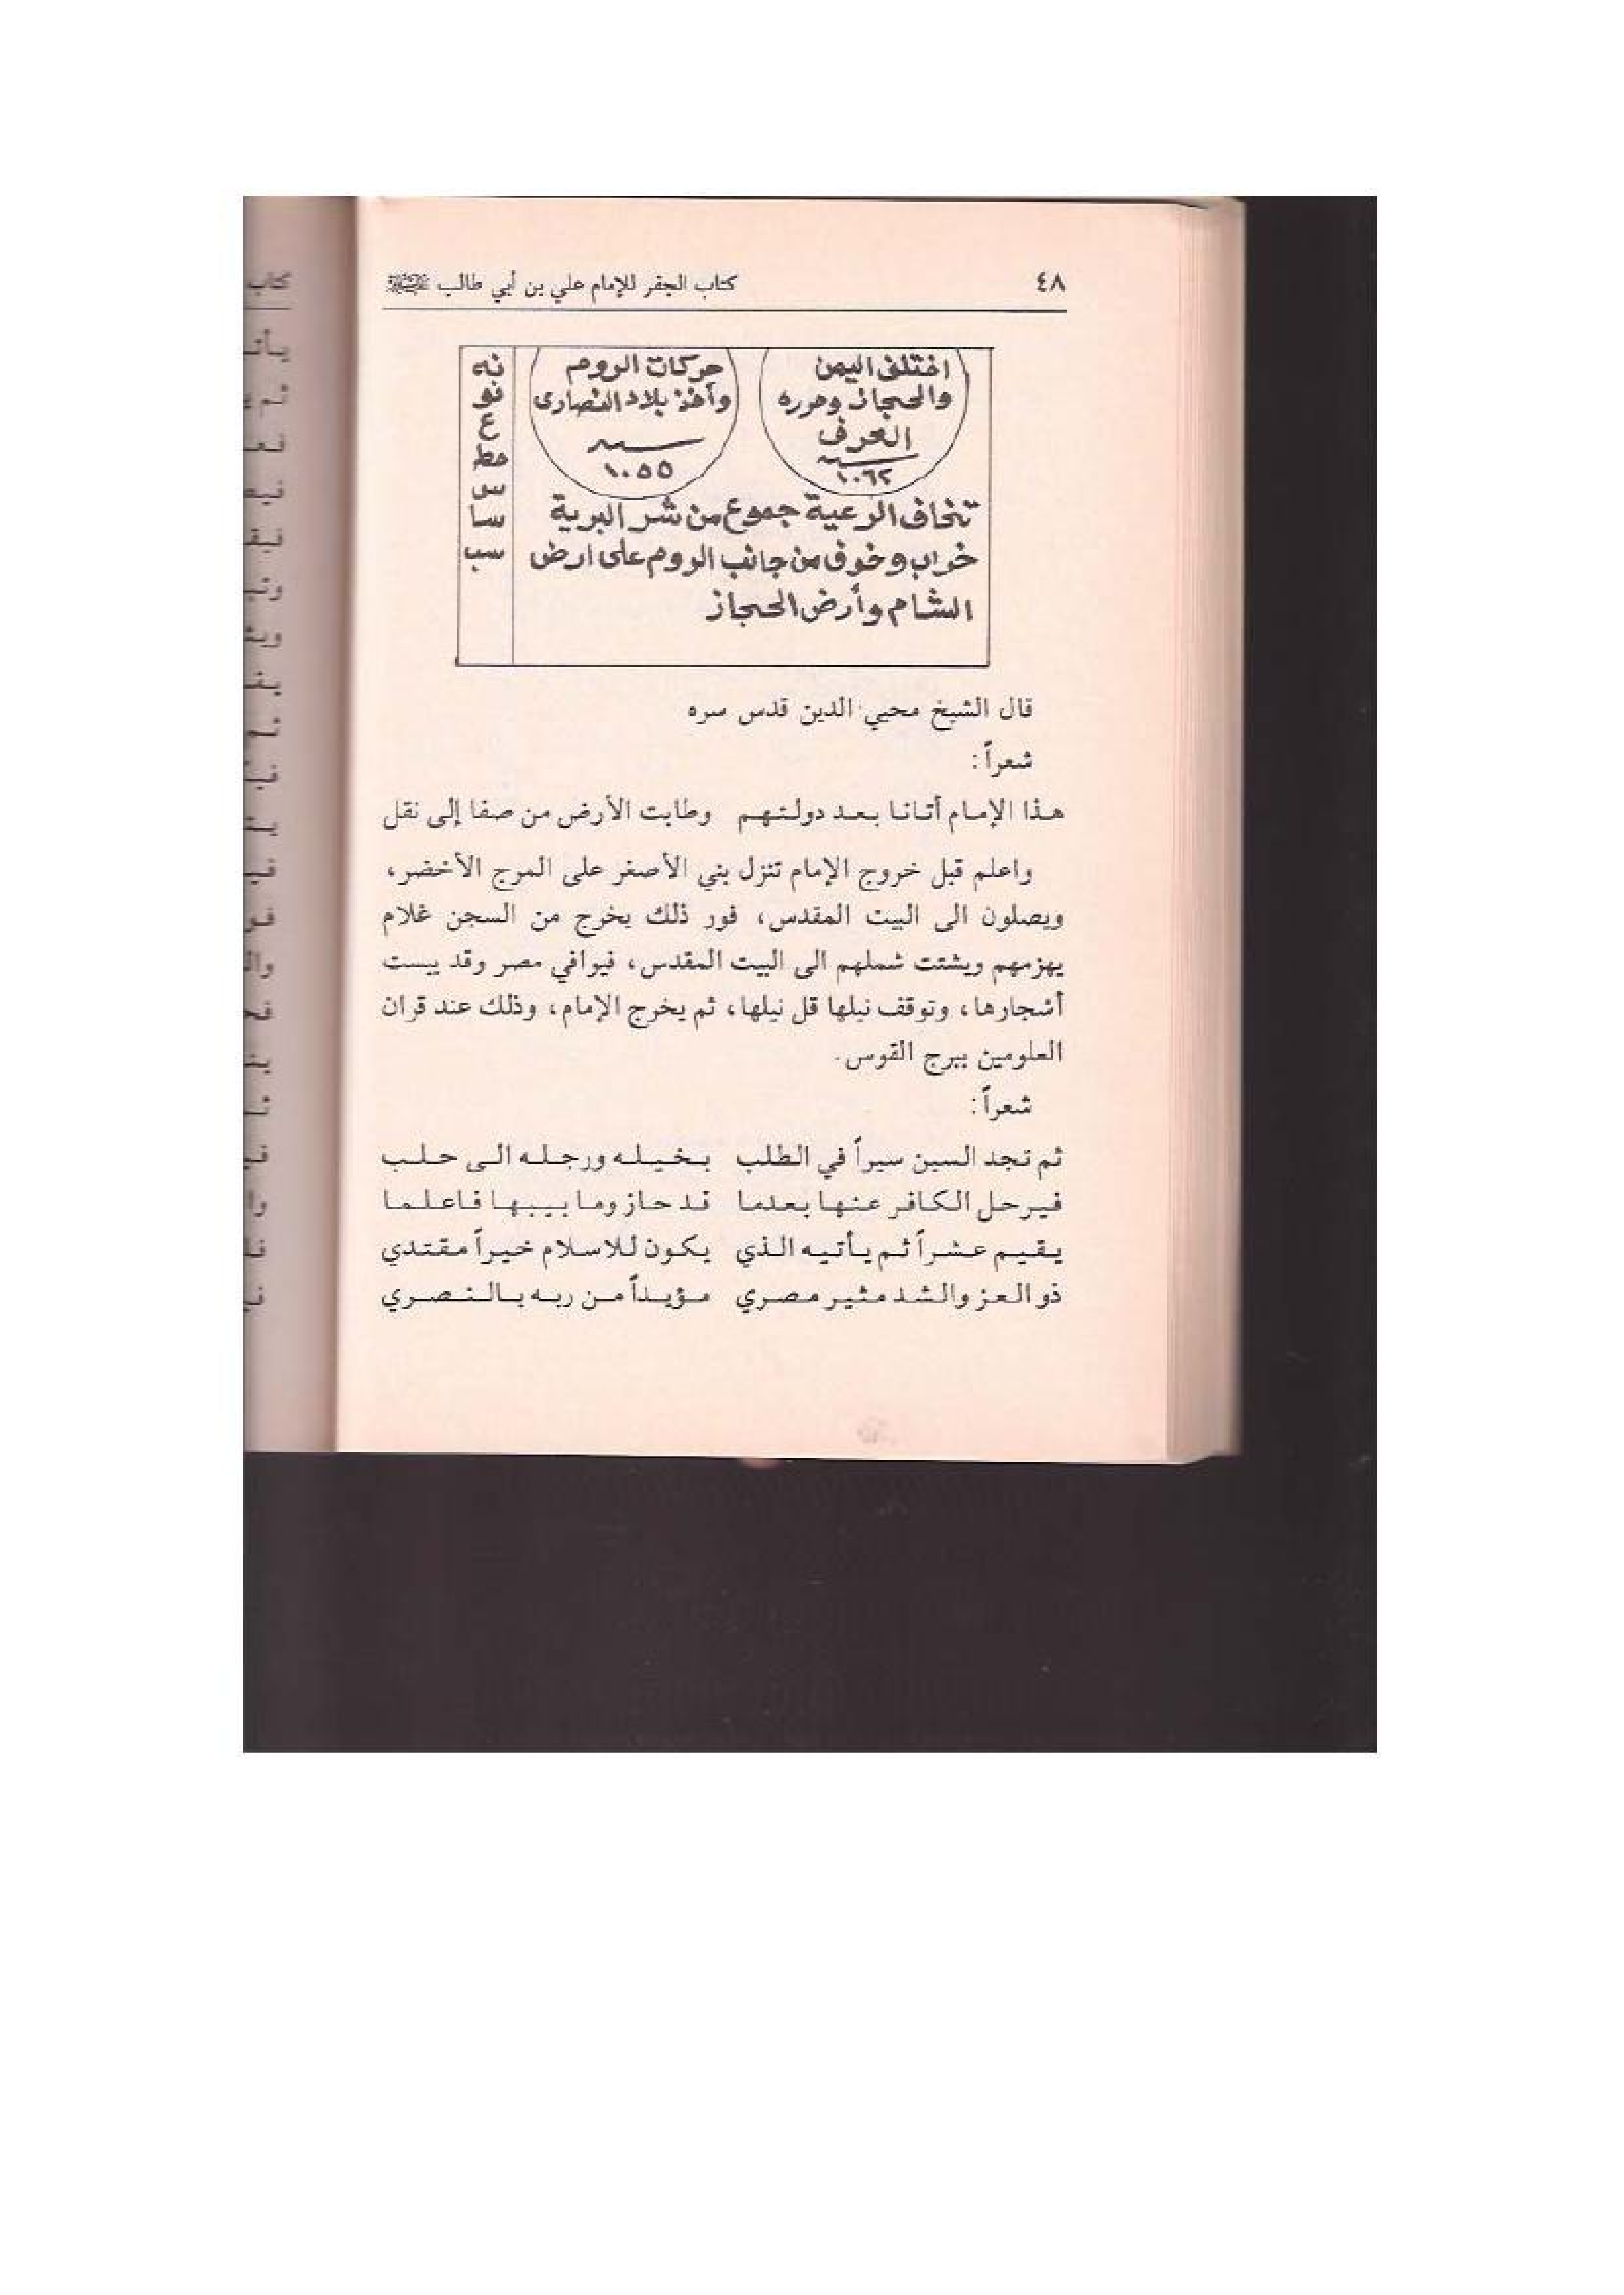 ٤٨ كتاب الجفر للإمام علي بن أبي طالب
اختلاف اليمن
والحجاز وحرره
العرف
سنة
١٠٦٢
حركات الروم
وأخذ بلاد النصارى
سنة
١٠٥٥
نه
نو
ع
حط
س
سا
سب
تخاف الرعية جموع من شر البرية
خراب وخوف من جانب الروم على ارض
الشام وأرض الحجاز
قال الشيخ محيي الدين قدس سره
شعراً:
هذا الإمام أتانا بعد دولتهم وطابت الأرض من صفا إلى نقل
واعلم قبل خروج الإمام تنزل بني الأصفر على المرج الأخضر،
ويصلون الى البيت المقدس، فور ذلك يخرج من السجن غلام
يهزمهم ويشتت شملهم الى البيت المقدس، فيوافي مصر وقد يبست
أشجارها، وتوقف نيلها قل نيلها، ثم يخرج الإمام، وذلك عند قران
العلومين ببرج القوس.
شعراً:
ثم تجد السين سيراً في الطلب بخيله ورجله الى حلب
فيرحل الكافر عنها بعدما قد حاز وما بيبها فاعلما
يقيم عشراً ثم يأتيه الذي يكون للاسلام خيراً مقتدي
ذو العز والشد مثير مصري مؤيداً من ربه بالنصري